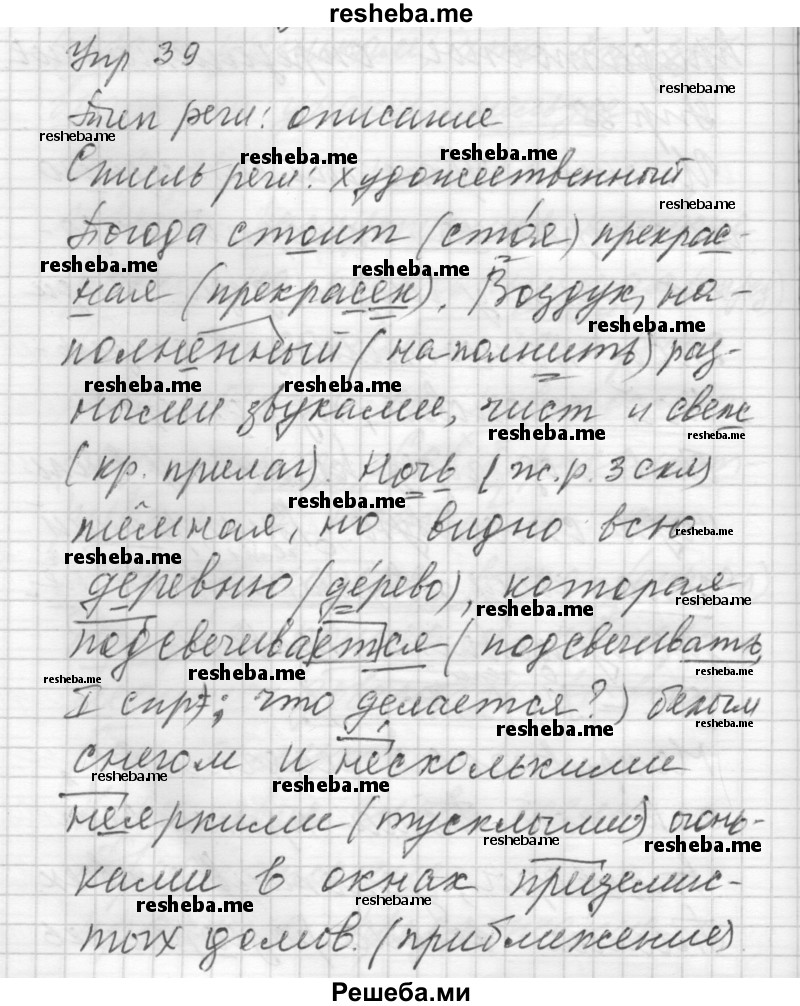 resheba.me
Упр 39
resheba.me
Тип речи: описание
resheba.me
resheba.me resheba.me
Стиль речи: художественный
resheba.me
Погода стоит (сто́я) прекрас-
resheba.me resheba.me
ная (прекрасен). Воздух, на-
resheba.me
полненный (наполнить) раз-
resheba.me resheba.me
ными звуками, чист и свеж
resheba.me resheba.me
(кр. прилаг). Ночь (ж.р. 3 скл)
resheba.me
тёмная, но видно всю
resheba.me
resheba.me
деревню (де́рево), которая
resheba.me resheba.me
подсвечивается (подсвечивать,
resheba.me resheba.me resheba.me
I спр; что делается?) белым
resheba.me resheba.me
снегом и несколькими
resheba.me resheba.me
неяркими (тусклыми) огонь-
resheba.me resheba.me
ками в окнах приземис-
resheba.me resheba.me
тых домов. (приближение).
Решеба.ми